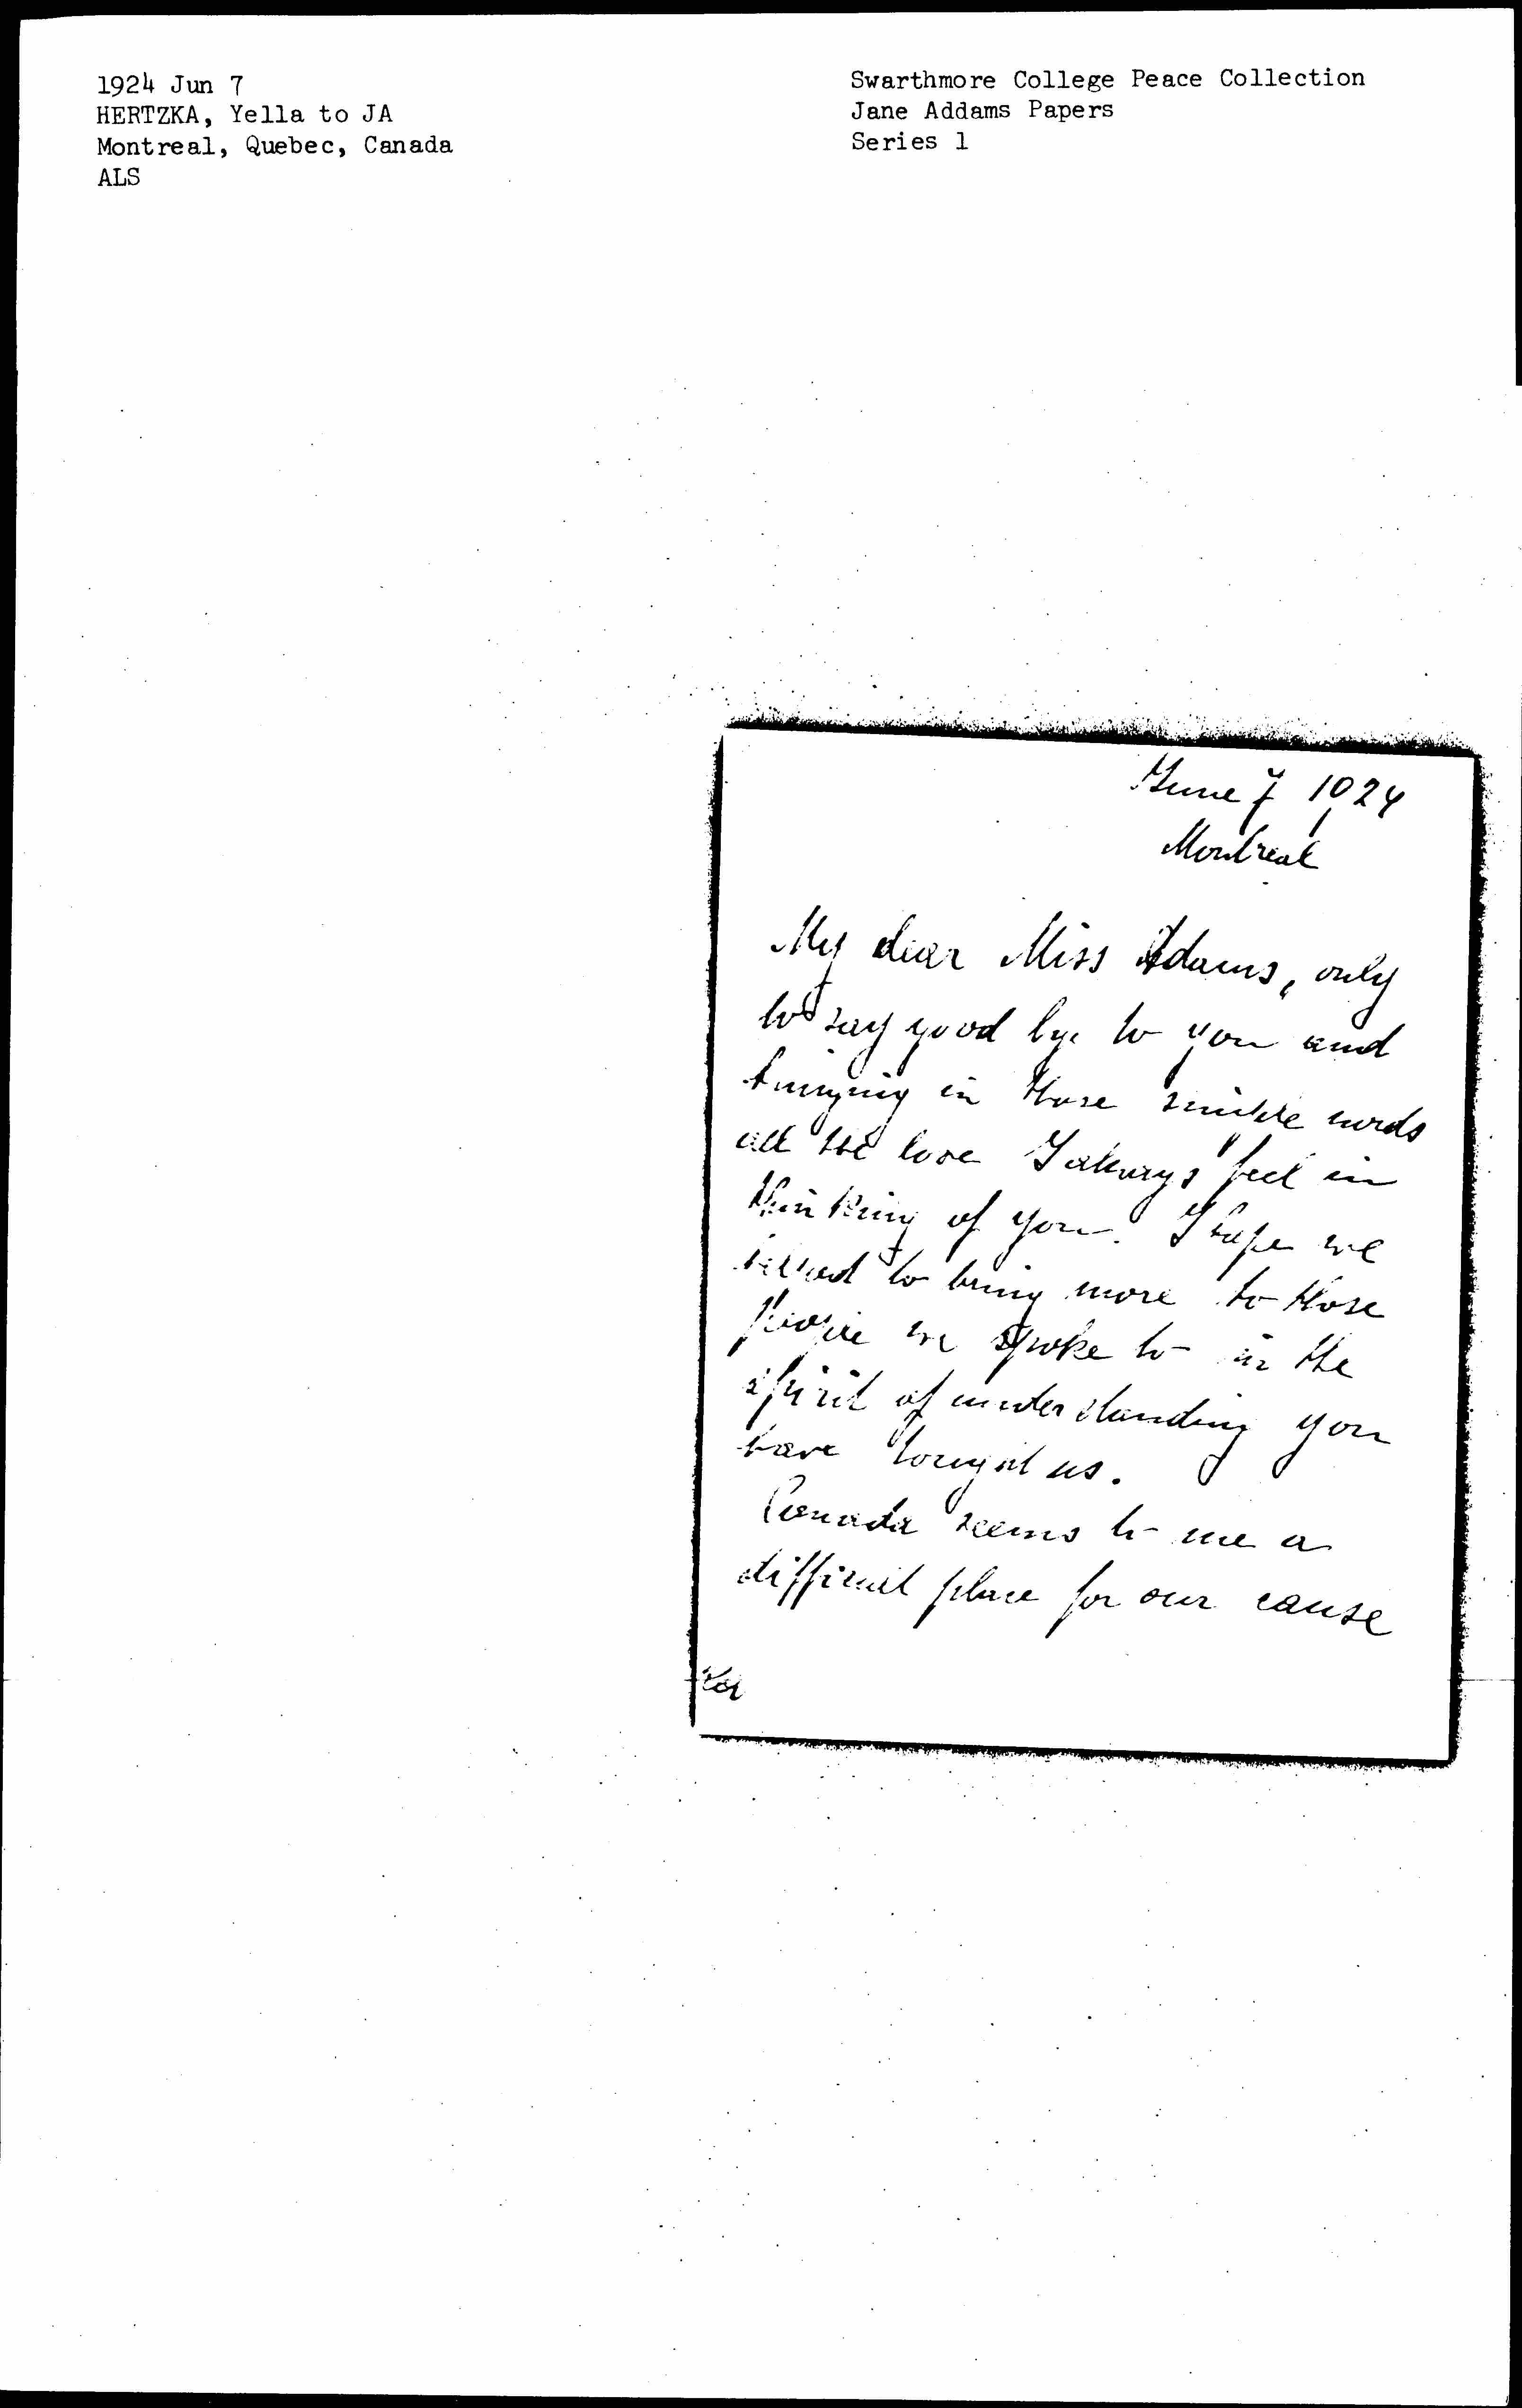 1924 Jun 7
HERTZKA, Yella to JA
Montreal, Quebec, Canada
ALS
Swarthmore College Peace Collection
Jane Addams Papers
Series 1
June 7 1924
Montreal
My dear Miss Adams, only
to say good bye to you and
bringing in those simple words
all the love I always feel in
thinking of you. I hope we
to bring more to those
people we spoke to in the
spirit of understanding you
have us.
Canada seems to me a
difficult place for our cause